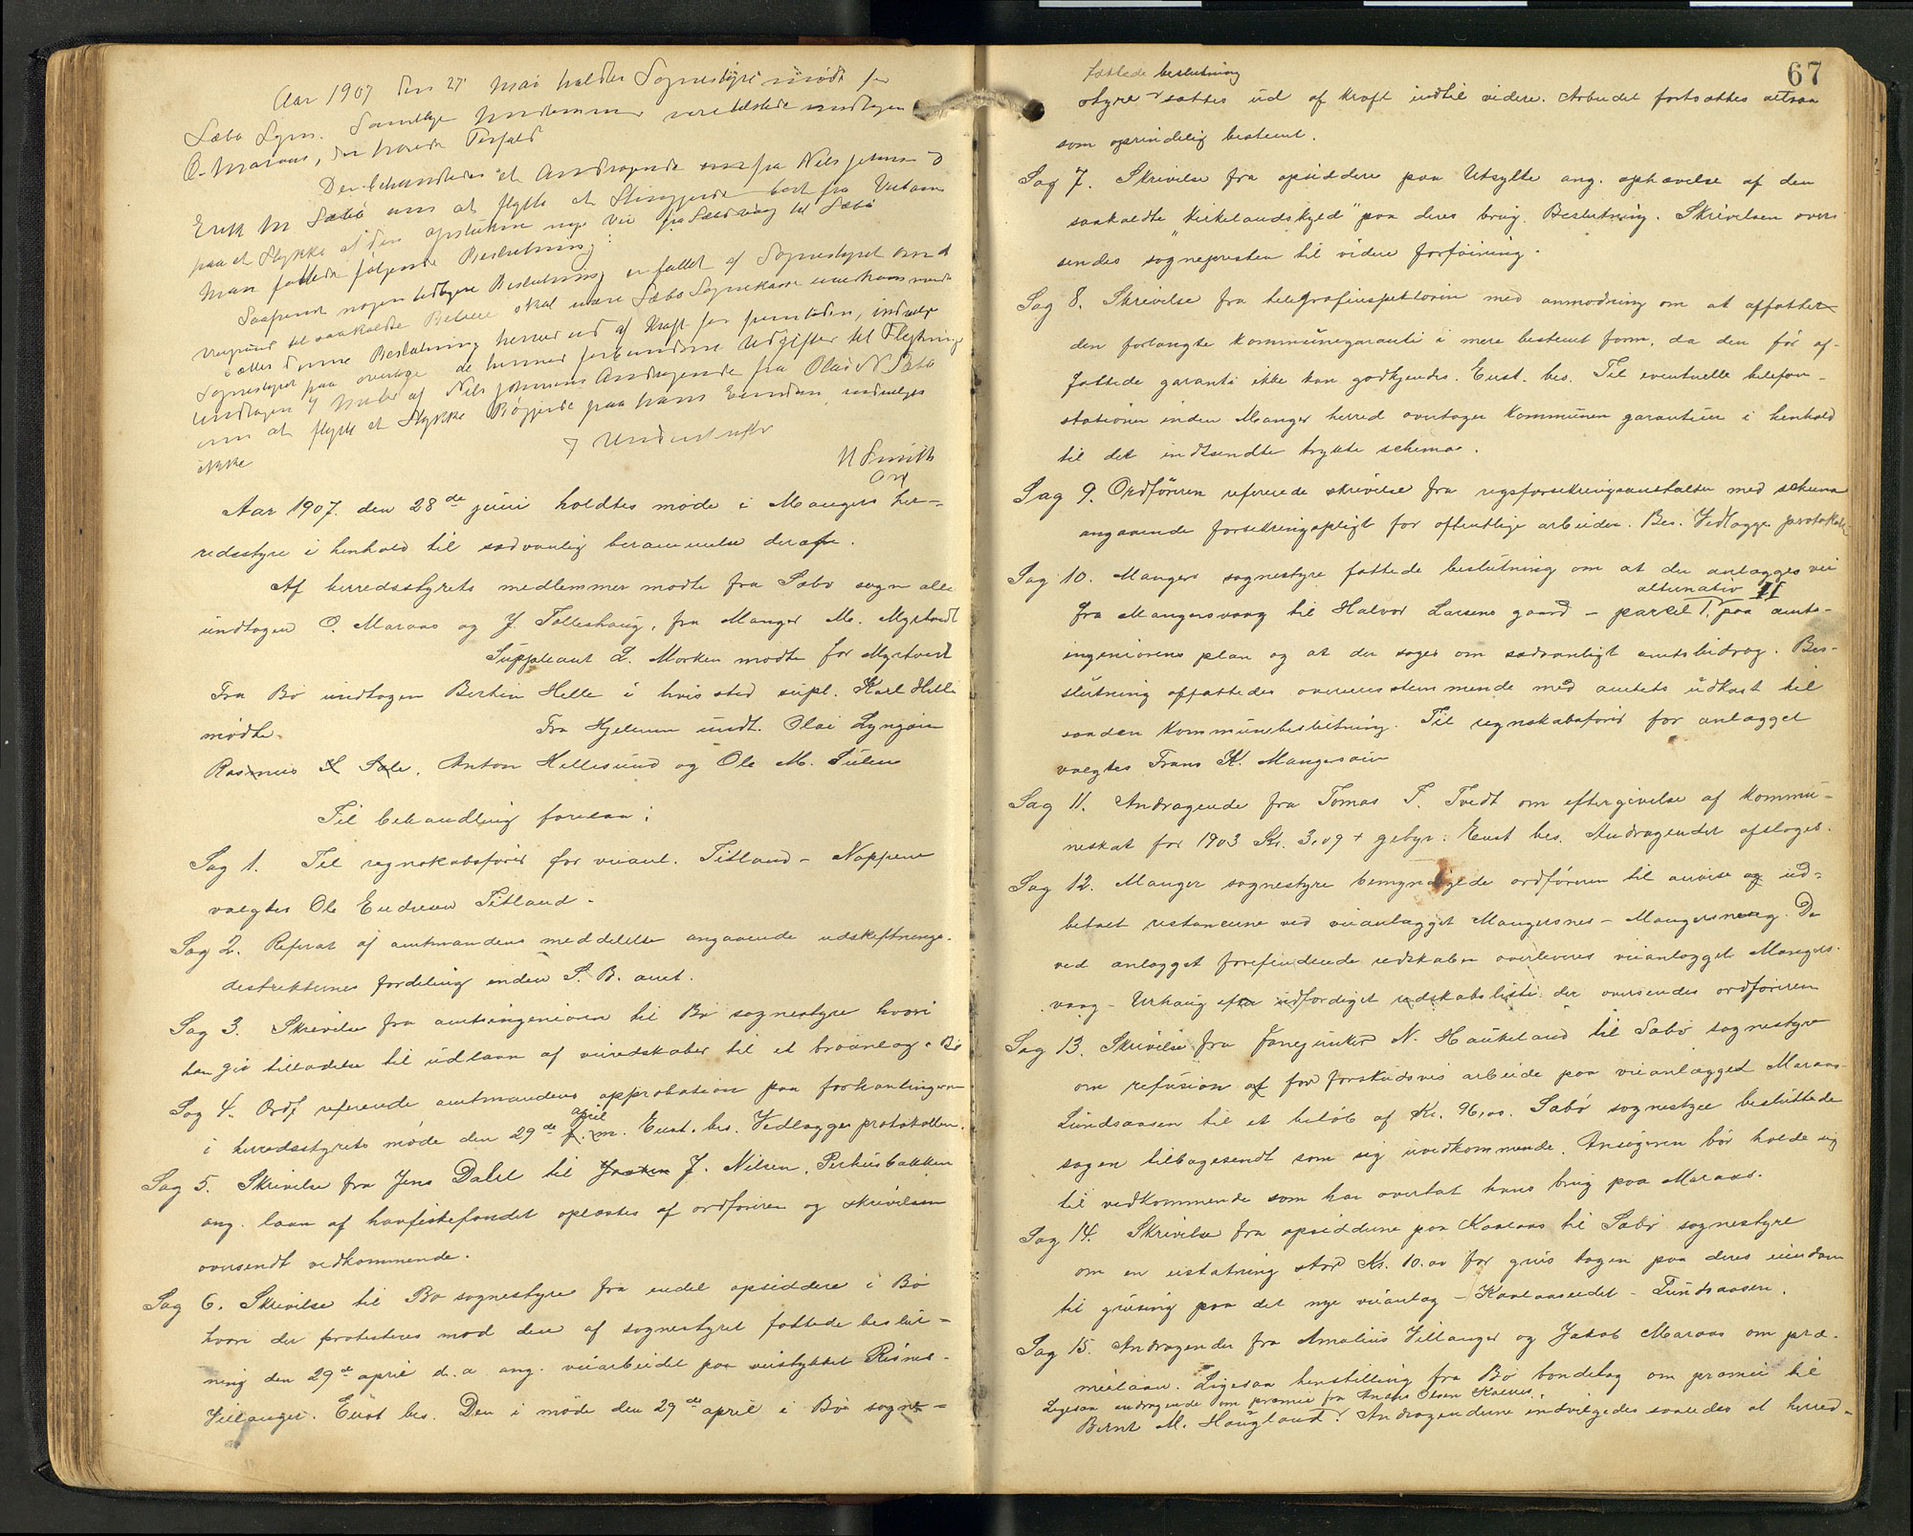 Aar 1907 den 27 Mai holdtes Sognestyremøde for
Sæbø Sogn. Samtlige Medlemmer vare tilstede undtagen
O. Maraas, der havde Forfald
Der behandledes et Andragende fra Nils Johnsen
Erik M Sæbø om at flytte et Stengjerde bort fra
paa et Stykke af den nye Vei fra til Sæbø
Man fattede følgende Beslutning:
Saafremt nogen tidligere Beslutning er fattet af Sognestyret om
saakaldte skal være Sæbø Sognekasse uvedkommende
sættes denne Beslutning herved ud af Kraft for fremtiden, indvilges
Sognestyret paa overtage de hermed forbundne Udgifter til Flytning
undtagen af Nils Johnsens Andragende fra Olai N Sæbø
om at flytte et Stykke paa hans Eiendom, indvilges
ikke
N Smith
Ordf
Aar 1907. den 28de juni holdtes møde i Mangers her-
redsstyre i henhold til sædvanlig berammelse deraf.
Af herredsstyrets medlemmer mødte fra Sæbø sogn alle
undtagen O. Maraas og J. Tolleshaug, fra Manger M. Myrtvedt
Suppleant L. Morken mødte for Myrtvedt
Fra Bø undtagen Bertin Helle i hvis sted supl. Karl Helle
mødte. Fra Hjelmen undt. Olai Lyngøien
Rasmus S Sæle, Anton Hellesund og Ole M. Sulen
Til behandling forelaa:
Sag 1. Til regnskabsfører for veianl. Titland - Noppene
valgtes Ole Endresen Titland.
Sag 2. Referat af amtmandens meddelelse angaaende udskiftnings-
destrikternes fordeling inden S. B. amt.
Sag 3. Skrivelse fra amtsingeniøren til Bø sognestyre hvori
han giv tilladelse til udlaan af veiredskaber til et broanlæg i Bø
Sag 4. Ordf refererede amtmandens approbation paa forhandlingerne
i herredsstyrets møde den 29de april f. m. Enst. bes. Vedlægges protokollen.
Sag 5. Skrivelse fra Jens Dahl til J. Nilsen, Perhusbakken
ang. laan af havfiskefondet oplæstes af ordføreren og skrivelsen
oversendt vedkommende.
Sag 6. Skrivelse til Bø sognestyre fra endel opsiddere i Bø
hvori der protesteres mod den af sognestyret fattede beslut-
ning den 29de april d. a ang. veiarbeidet paa veistykket Risnes-
Villanger. Enst bes. Den i møde den 29de april i Bø sogne-
67
fattede beslutning
styre sættes ud af kraft indtil videre. Arbeidet fortsættes altsaa
som oprindelig bestemt.
Sag 7. Skrivelse fra opsiddere paa Utsylte ang. ophævelse af den
saakaldte "kirkelandskyld" paa deres brug. Beslutning. Skrivelsen over-
sendes sognepresten til videre forføining.
Sag 8. Skrivelse fra telegrafinspektøren med anmodning om at affatte
den forlangte kommunegaranti i mere bestemt form, da den før af-
fattede garanti ikke kan godkjendes. Enst. bes. Til eventuelle telefon-
stationer inden Manger herred overtager kommunen garantien i henhold
til det indsendte trykte schema.
Sag 9. Ordføreren refererede skrivelse fra rigsforsikringsanstalten med schema
angaaende forsikringspligt for offentlige arbeider. Bes. Vedlægges protokol.
Sag 10. Mangers sognestyre fattede beslutning om at der anlægges vei
alternativ II
fra Mangersvaag til Halvor Larsens gaard - parcel I, paa amts-
ingeniørens plan og at der søges om sædvanligt amtsbidrag. Bes-
slutning affattedes overensstemmende med amtets udkast til
saadan kommunebeslutning. Til regnskabsfører for anlægget
valgtes Frans K. Mangersøien
Sag 11. Andragende fra Tomas T. Tvedt om eftergivelse af kommu-
neskat for 1903 Kr. 3,09 + gebyr. Enst bes. Andragendet afslaaes.
Sag 12. Manger sognestyre bemyndigede ordføreren til anvise og ud-
betalt restancerne ved veianlægget Mangersnes - Mangersvaag. De
ved anlægget forefindende redskaber overleveres veianlægget Mangers-
vaag - Urhaug efter udfærdiget redskabsliste der oversendes ordføreren
Sag 13. Skrivelse fra Fanejunker N. Haukeland til Sæbø sognestyre
om refusion af for forskudsvis arbeide paa veianlægget Maraas-
Lundsaasen til et beløb af Kr. 96,00. Sæbø sognestyre besluttede
sagen tilbagesendt som sig uvedkommende. Ansøgeren bør holde sig
til vedkommende som har overtat hans brug paa Maraas.
Sag 14. Skrivelse fra opsidderne paa Kaalaas til Sæbø sognestyre
om en erstatning stor Kr. 10.00 for grus tagen paa deres eiendom
til grusing paa det nye veianlæg - Kaalaaseidet - Lundsaasen.
Sag 15. Andragender fra Amalius Villanger og Jakob Maraas om præ-
mielaan. Ligesaa henstilling fra Bø bondelag om præmie til
Ligesaa andragende om præmie fra Anders Olsen Kalnes.
Bernt M. Haugland. Andragenderne indvilgedes saaledes at herred-